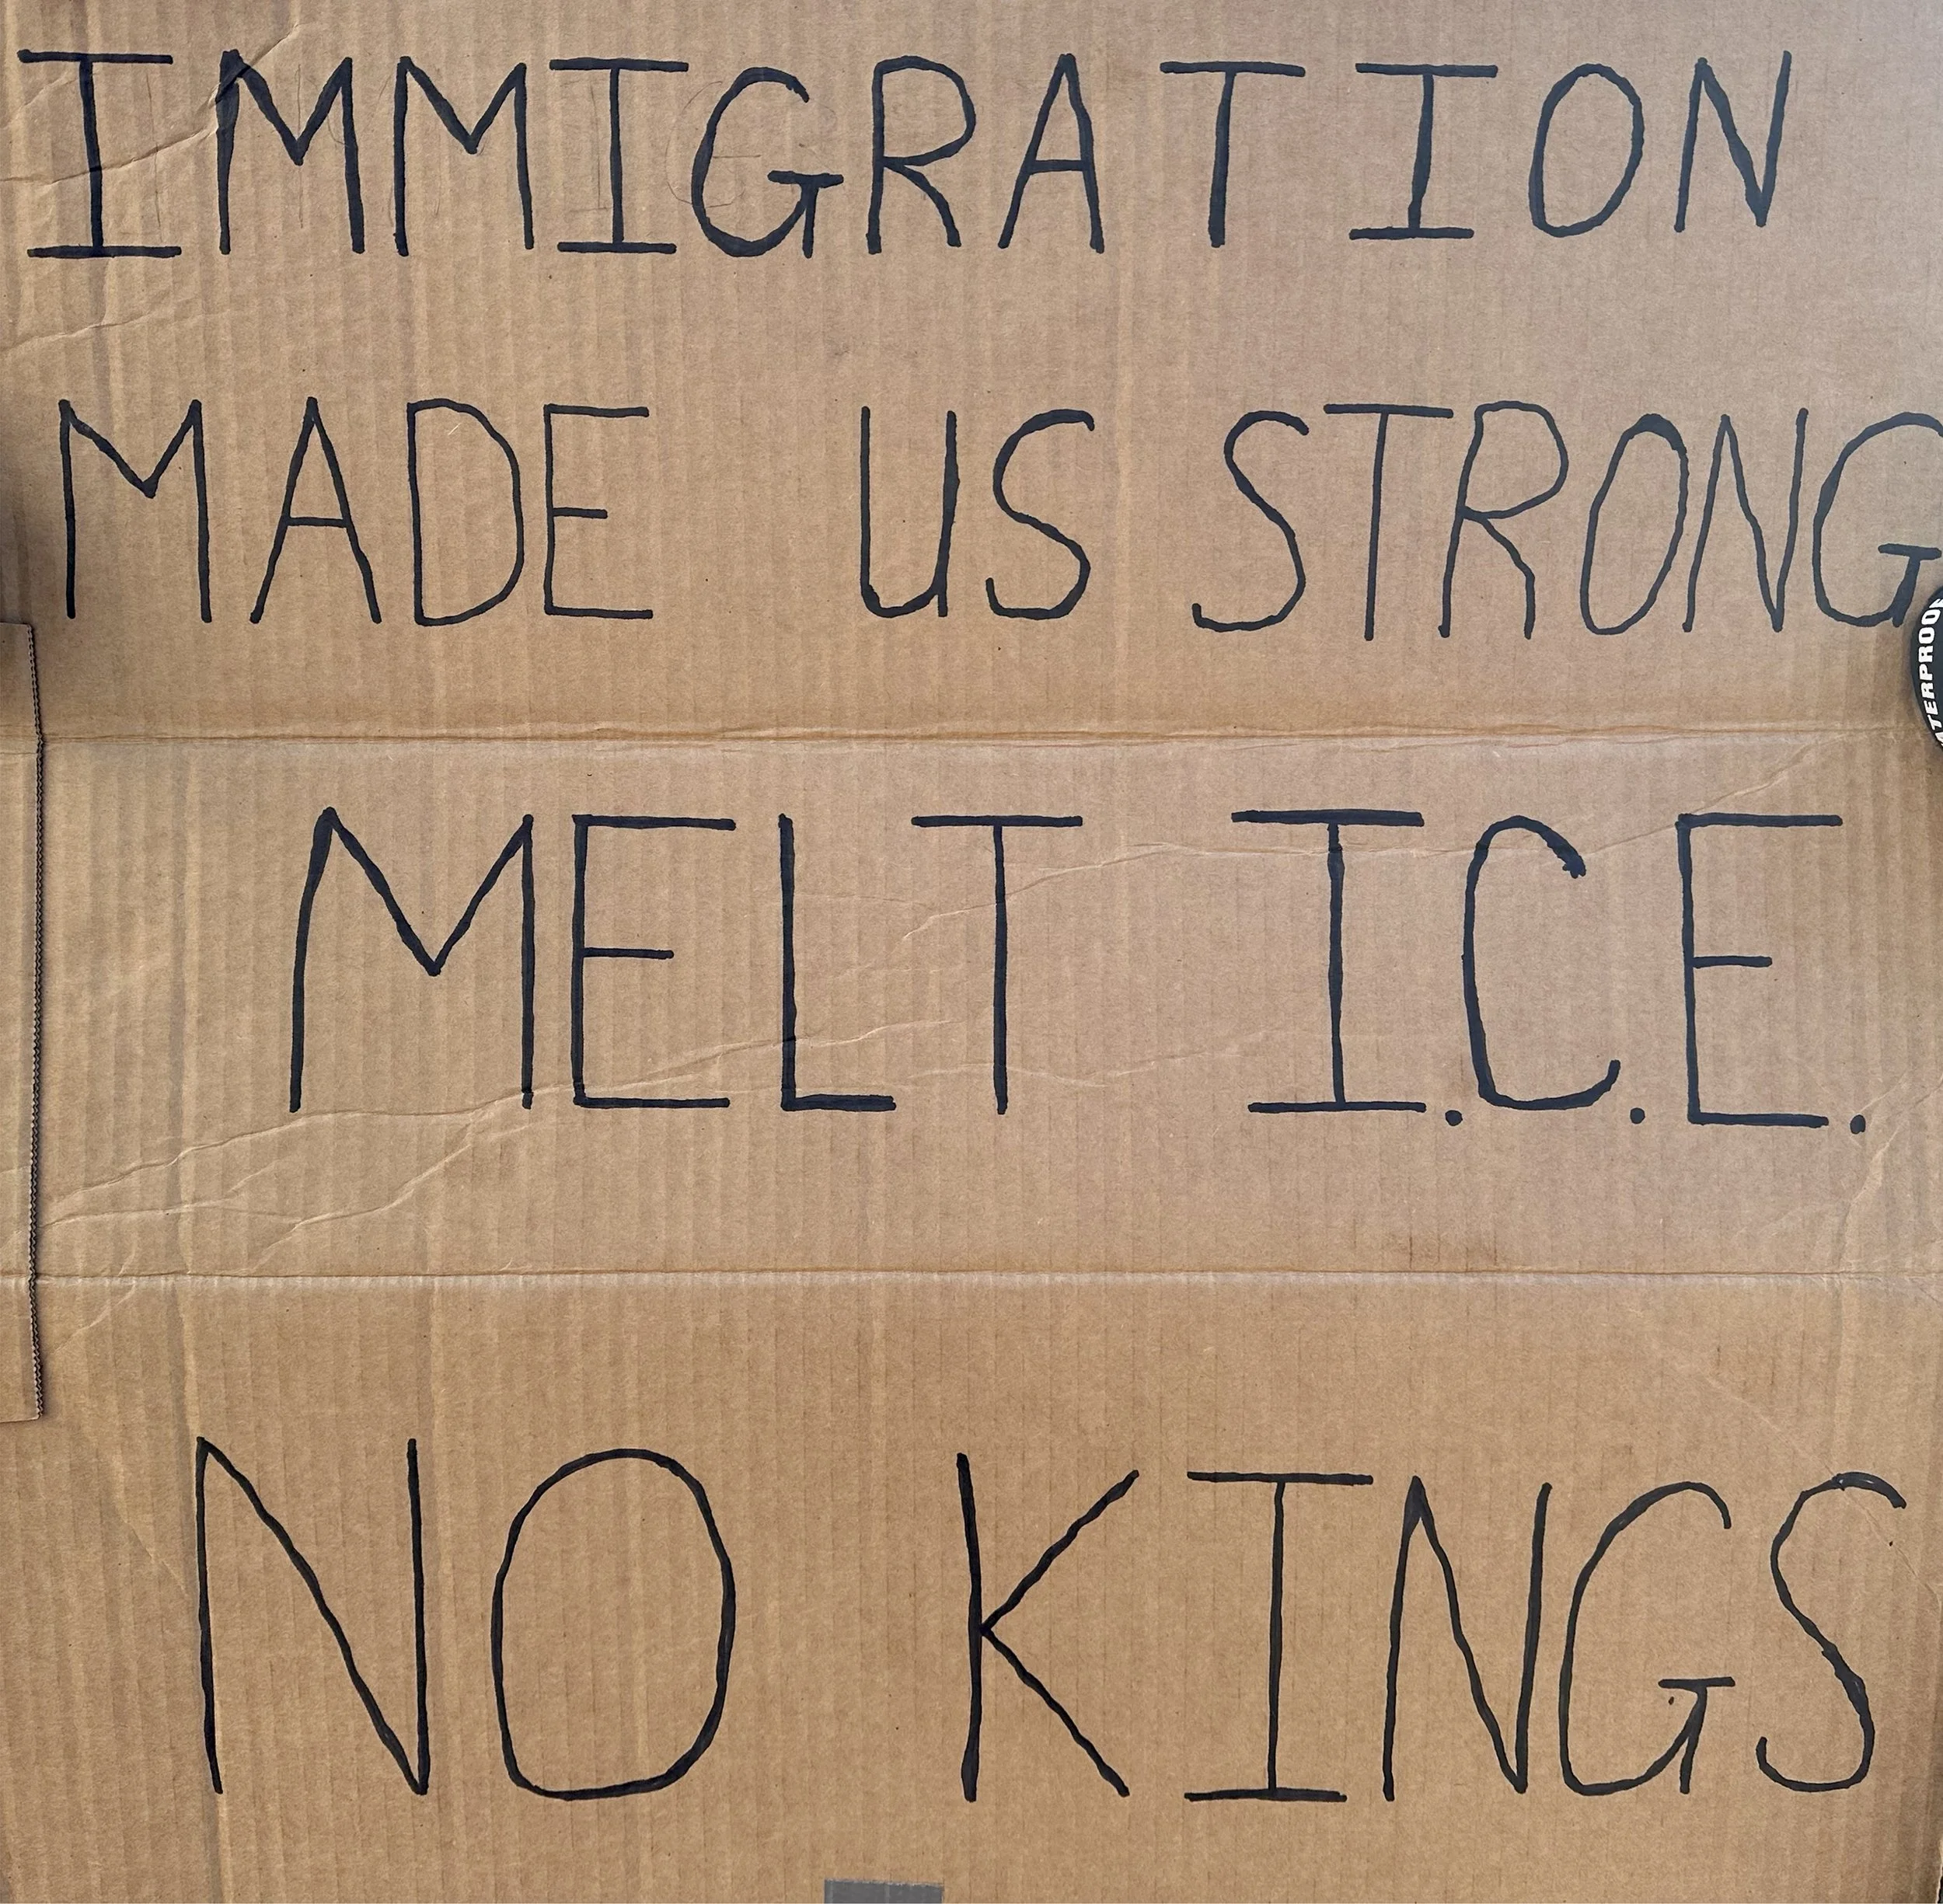 IMMIGRATION
MADE US STRONG
MELT I.C.E.
NO KINGS